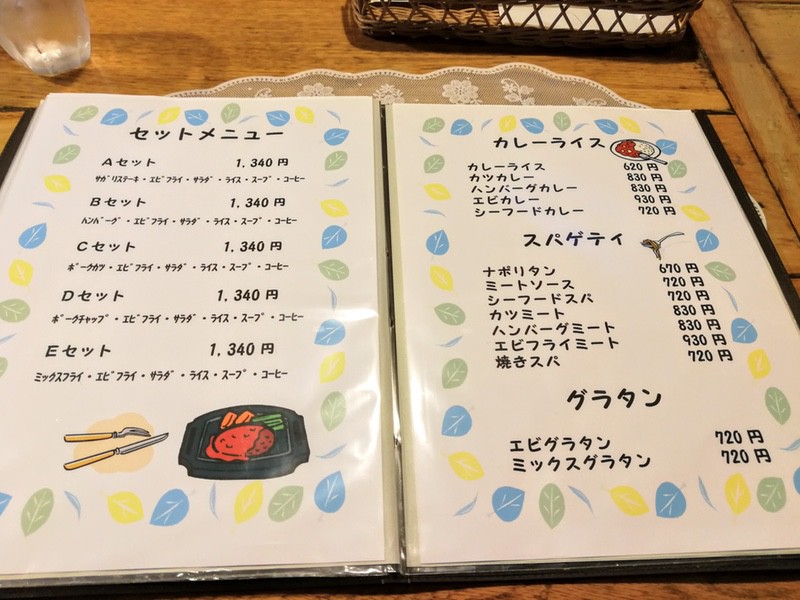 セットメニュー
Aセット 1,340円
ｻｶﾞﾘｽﾃｰｷ・ｴﾋﾞﾌﾗｲ・ｻﾗﾀﾞ・ﾗｲｽ・ｽｰﾌﾟ・ｺｰﾋｰ
Bセット 1,340円
ﾊﾝﾊﾞｰｸﾞ・ｴﾋﾞﾌﾗｲ・ｻﾗﾀﾞ・ﾗｲｽ・ｽｰﾌﾟ・ｺｰﾋｰ
Cセット 1,340円
ﾎﾟｰｸｶﾂ・ｴﾋﾞﾌﾗｲ・ｻﾗﾀﾞ・ﾗｲｽ・ｽｰﾌﾟ・ｺｰﾋｰ
Dセット 1,340円
ﾎﾟｰｸﾁｬｯﾌﾟ・ｴﾋﾞﾌﾗｲ・ｻﾗﾀﾞ・ﾗｲｽ・ｽｰﾌﾟ・ｺｰﾋｰ
Eセット 1,340円
ﾐｯｸｽﾌﾗｲ・ｴﾋﾞﾌﾗｲ・ｻﾗﾀﾞ・ﾗｲｽ・ｽｰﾌﾟ・ｺｰﾋｰ
カレーライス
カレーライス 620円
カツカレー 830円
ハンバーグカレー 830円
エビカレー 930円
シーフードカレー 720円
スパゲティ
ナポリタン 670円
ミートソース 720円
シーフードスパ 720円
カツミート 830円
ハンバーグミート 830円
エビフライミート 930円
焼きスパ 720円
グラタン
エビグラタン 720円
ミックスグラタン 720円